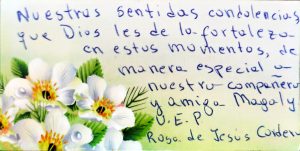 Nuestras sentidas condolencias
que Dios les de la fortaleza
en estos momentos, de
manera especial a
nuestra compañera
y amiga Magaly
Q.E.P
Rosa de Jesús Cordero